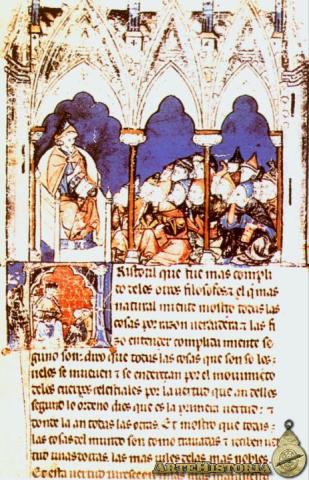 Ristotil que fue mas compli
do delos otros filosofos. & el q mas
natural miente mostro todas las
cosas por razon uerdadera. & las fi
zo entender complida miente se
gund son: dixo que todas las cosas que son so los
cielos se mueuen & se enderesçan por el mouimiento
delos cuerpos celestiales por la uertud que an dellos
segund lo ordeno dios que es la primera uertud: &
donde la an todas las otras. Et mostro que todas
las cosas del mundo son como trauadas & reciben uer
tud unas dotras. las mas uiles delas mas nobles.
Et esta uertud paresce en unas mas
ARTEHISTORIA